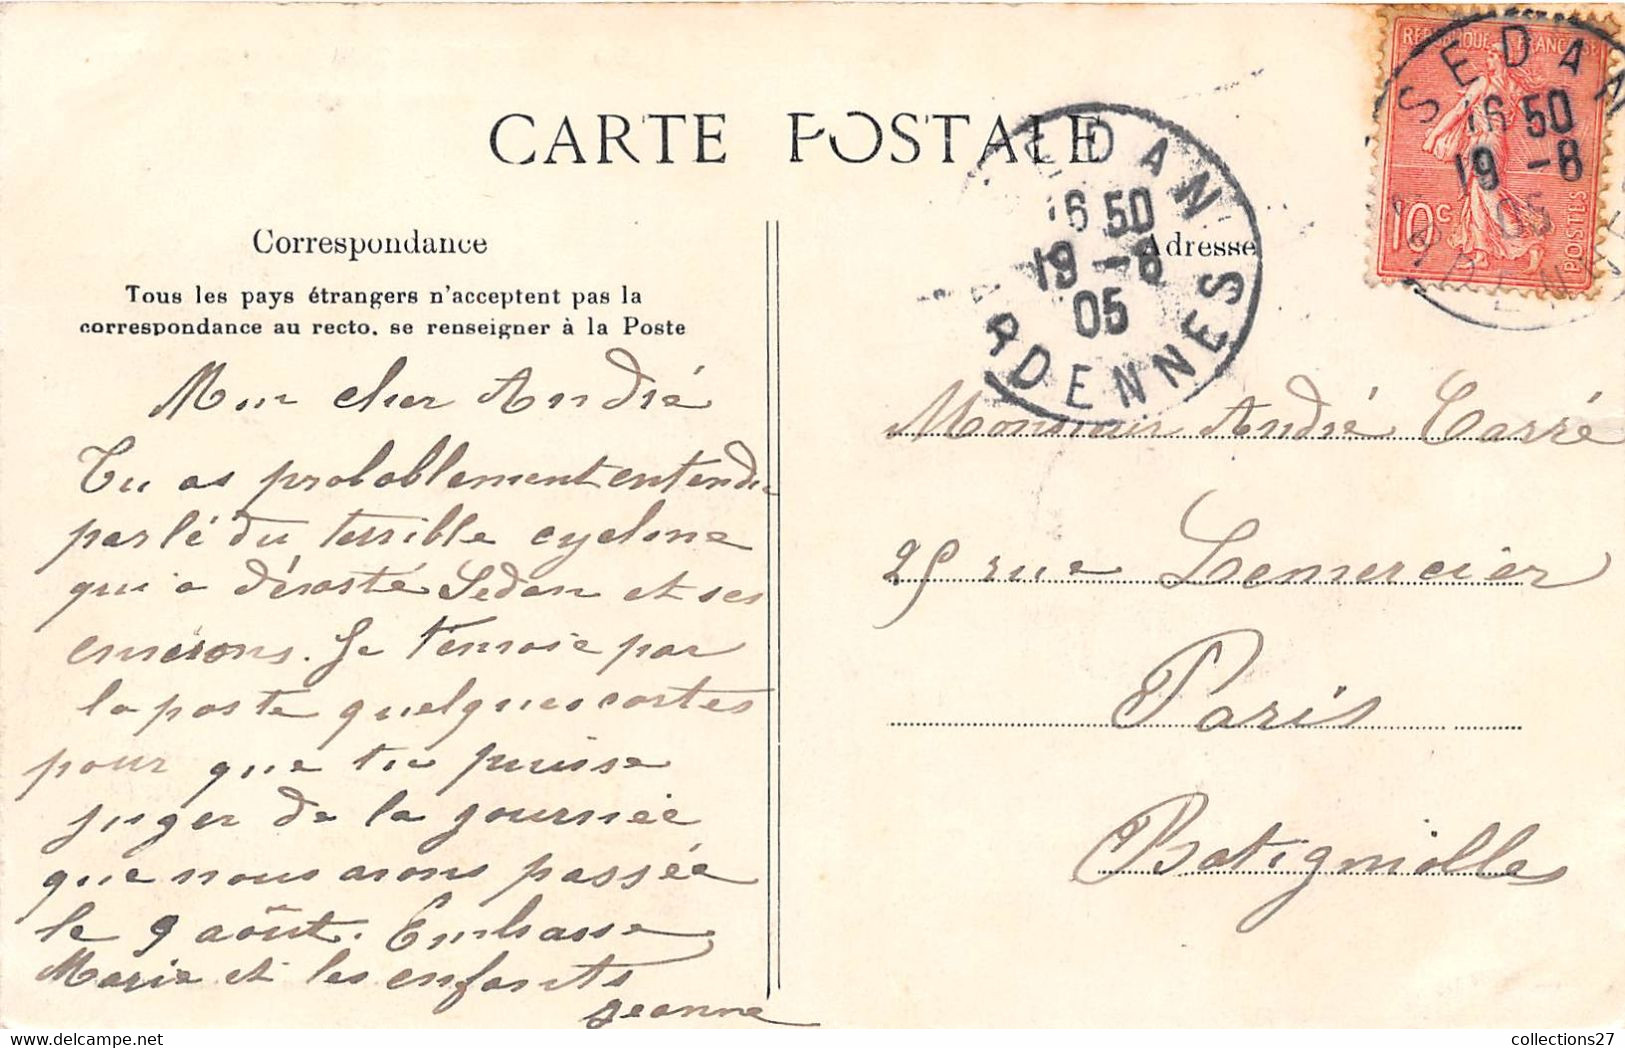 CARTE POSTALE
Correspondance
Tous les pays étrangers n'acceptent pas la
correspondance au recto, se renseigner à la Poste
Mon cher André
Tu as probablement entendu
parlé du terrible cyclone
qui a dévasté Sedan et ses
environs. Je t'envoie par
la poste quelques cartes
pour que tu puisse
juger de la journée
que nous avons passée
le 9 août. Embrasse
Marie et les enfants
Jeanne
SEDAN
16 50
19 -8
05
ARDENNES
Adresse
REPUBLIQUE FRANCAISE
10c
POSTES
SEDAN
16 50
19 -8
05
ARDENNES
Monsieur André Carré
25 rue Lemercier
Paris
Batigniolles
collections27